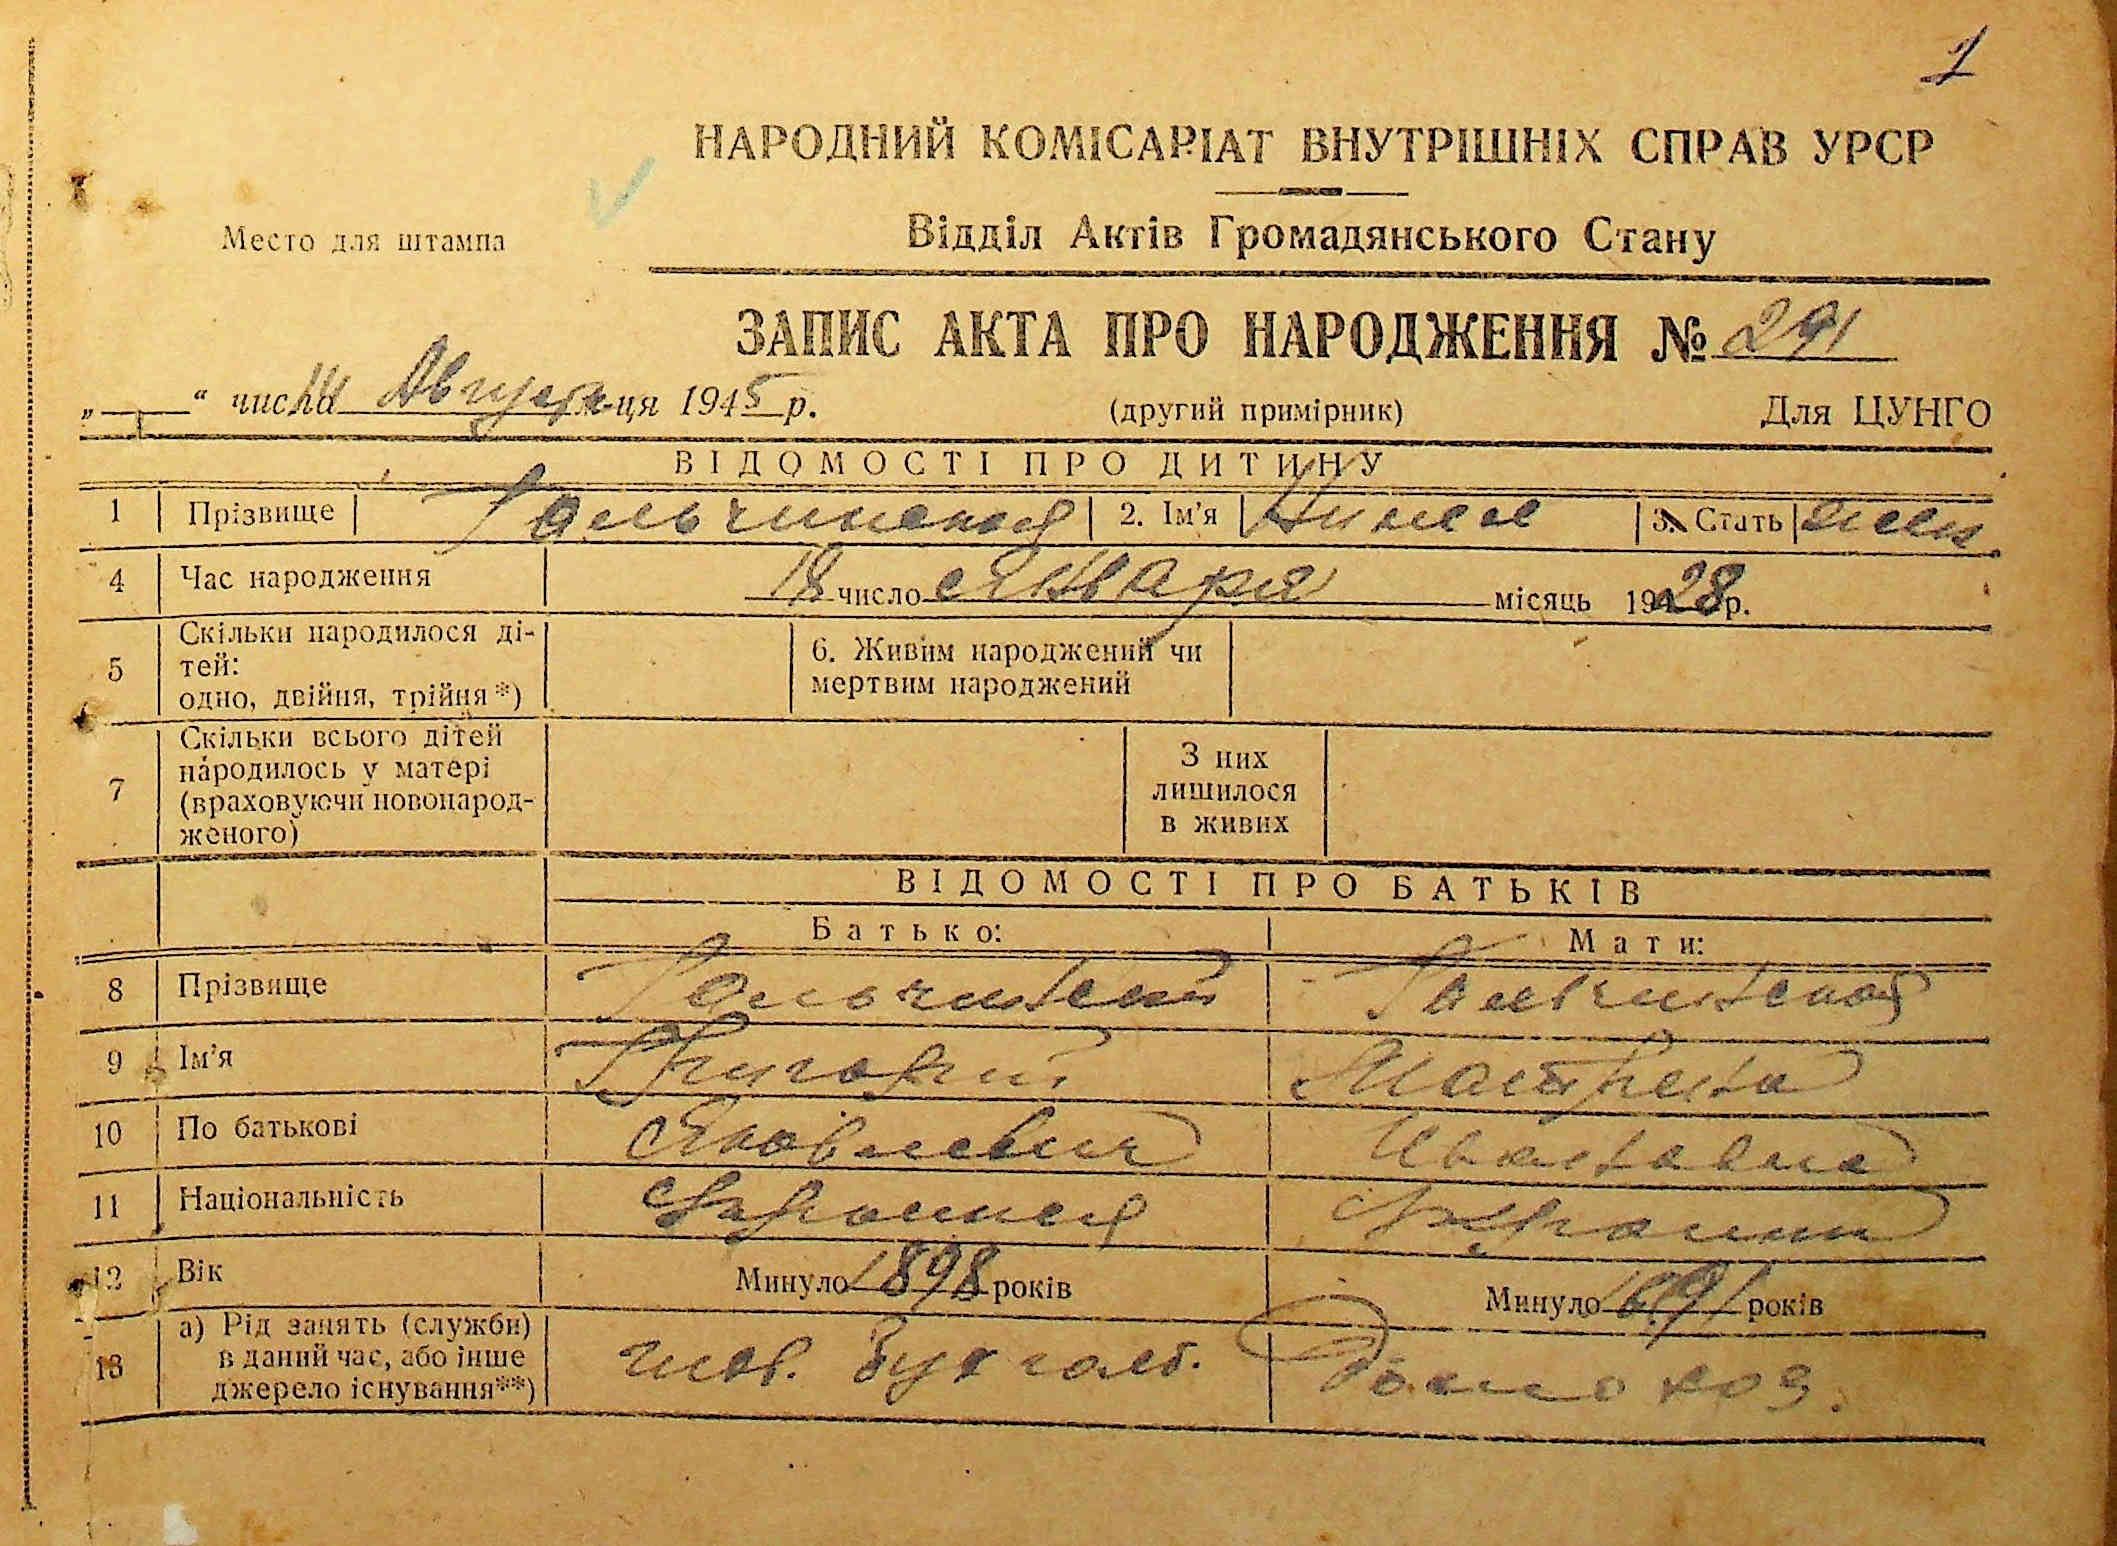 1
НАРОДНИЙ КОМІСАРІАТ ВНУТРІШНІХ СПРАВ УРСР
Место для штампа
Відділ Актів Громадянського Стану
ЗАПИС АКТА ПРО НАРОДЖЕННЯ № 291
„ “ числа Августа м-ця 1945 р. (другий примірник) Для ЦУНГО
ВІДОМОСТІ ПРО ДИТИНУ
1 Прізвище Гальчинская 2. Ім’я Нина 3. Стать жен.
4 Час народження 18 число Января місяць 1928 р.
5 Скільки народилося ді-
тей:
одно, двійня, трійня*)
6. Живим народжений чи
мертвим народжений
7 Скільки всього дітей
народилось у матері
(враховуючи новонарод-
женого)
З них
лишилося
в живих
ВІДОМОСТІ ПРО БАТЬКІВ
Батько: Мати:
8 Прізвище Гальчинский Гальчинская
9 Ім’я Григорий
10 По батькові Яковлевич Ивановна
11 Національність
12 Вік Минуло 1898 років Минуло 1891 років
13 а) Рід занять (служби)
в даний час, або інше
джерело існування**)
бухгалт. Домохоз.